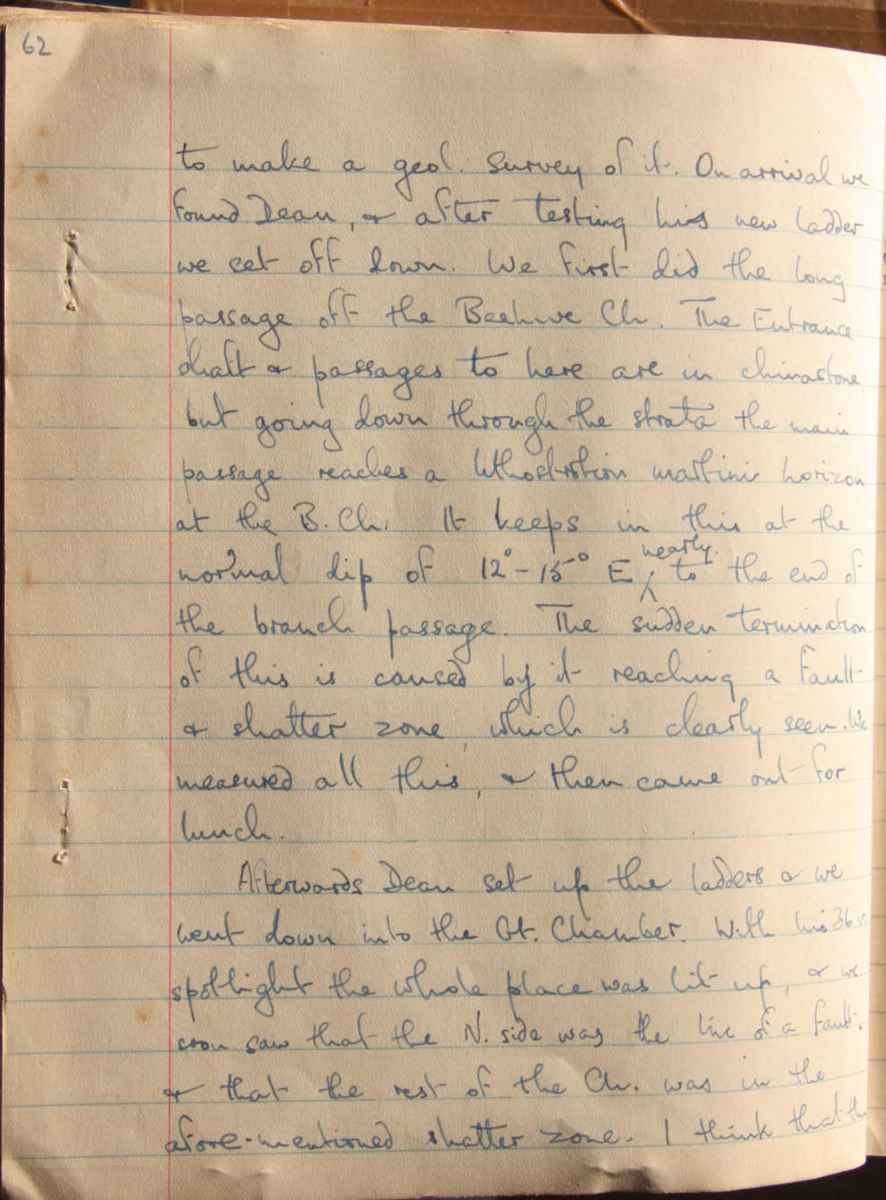 62
to make a geol. survey of it. On arrival we
found Dean, & after testing his new ladder
we set off down. We first did the long
passage off the Beehive Ch. The Entrance
shaft & passages to here are in chinastone
but going down through the strata the main
passage reaches a lithostrotion martini horizon
at the B. Ch. It keeps in this at the
nearly.
normal dip of 12°-15° E ⁁ to the end of
the branch passage. The sudden termination
of this is caused by it reaching a fault
& shatter zone, which is clearly seen. We
measured all this, & then came out for
lunch.
Afterwards Dean set up the ladders & we
went down into the Gt. Chamber. With his
spotlight the whole place was lit up, & we
soon saw that the N. side was the line of a fault.
& that the rest of the Ch. was in the
afore-mentioned shatter zone. I think that